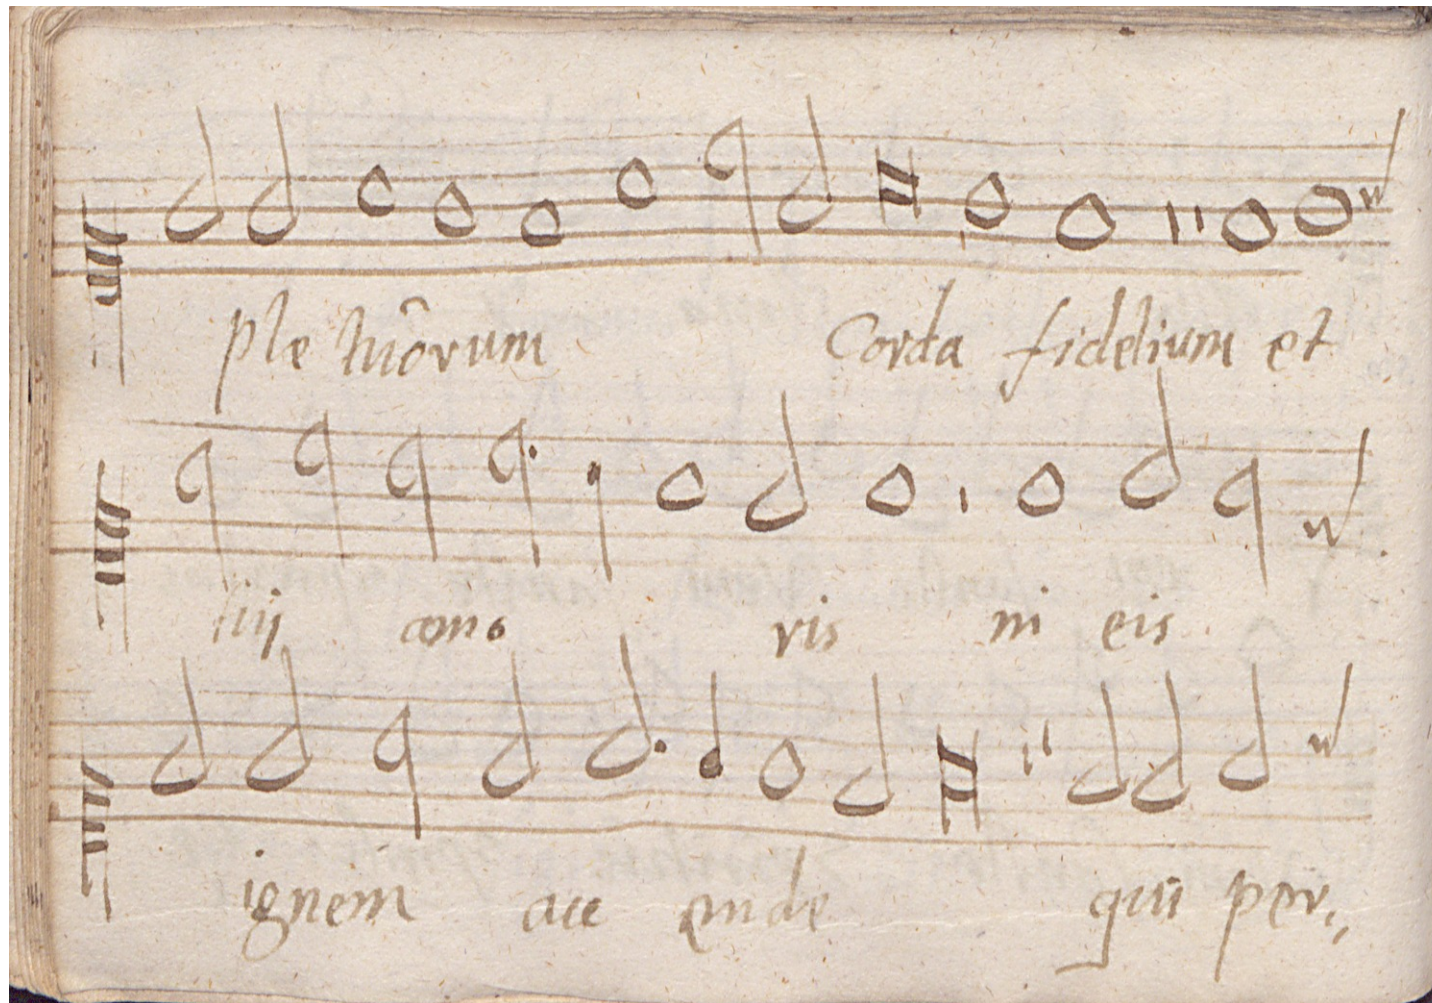 ple tuôrum Corda fidelium et
tui amo ris in eis
ignem acc ende qui per,,